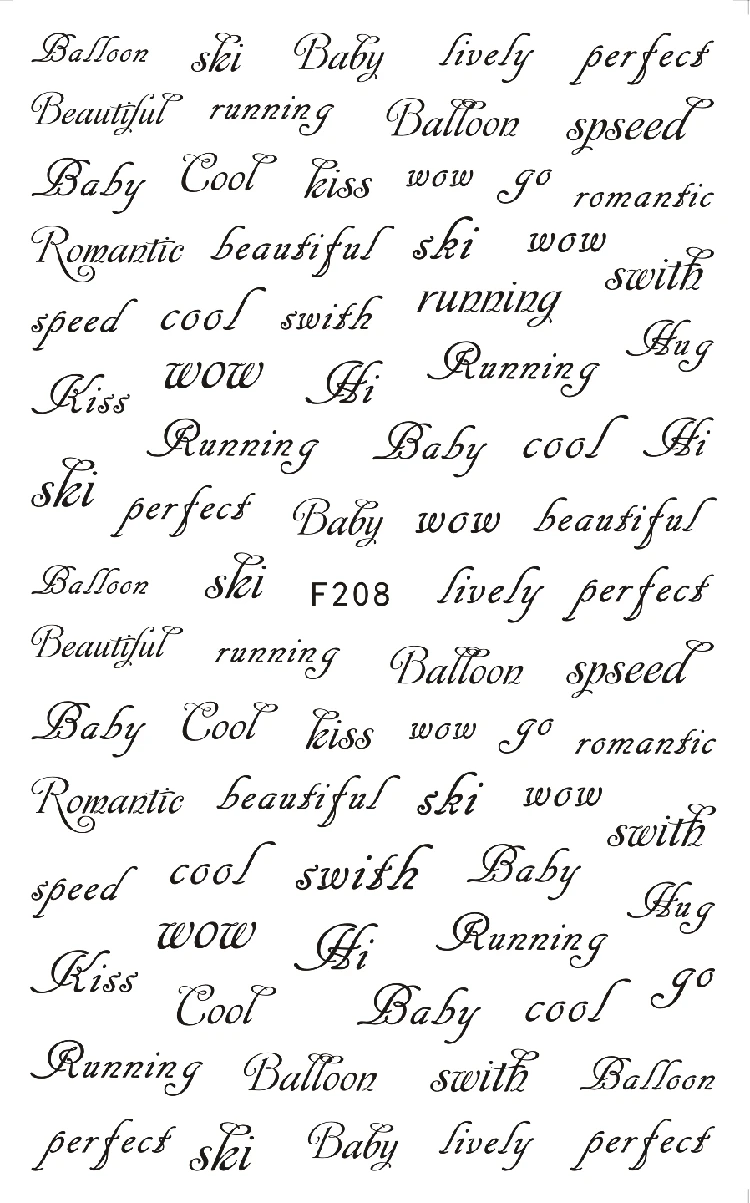 Balloon ski Baby lively perfect
Beautiful running Balloon spseed
Baby Cool kiss wow go romantic
Romantic beautiful ski wow
swith
speed cool swith running
Hug
Kiss wow Hi Running
Running Baby cool Hi
ski perfect Baby wow beautiful
Balloon ski F208 lively perfect
Beautiful running Balloon spseed
Baby Cool kiss wow go romantic
Romantic beautiful ski wow
swith
speed cool swith Baby
Hug
Kiss wow Hi Running
Cool Baby cool go
Running Balloon swith Balloon
perfect ski Baby lively perfect